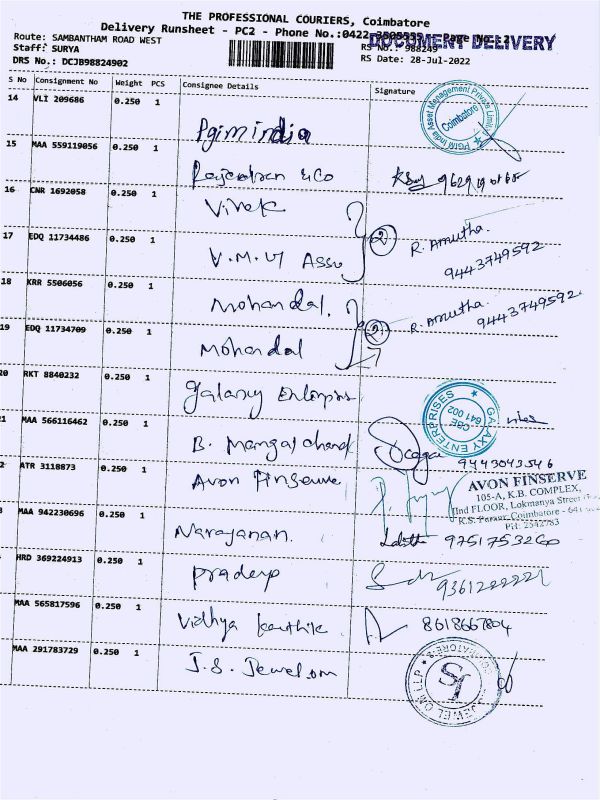 THE PROFESSIONAL COURIERS, Coimbatore
Delivery Runsheet - PC2 - Phone No.:0422 Page No.:2
DOCUMENT DELIVERY
Route: SAMBANTHAM ROAD WEST RS No.: 988249
Staff: SURYA RS Date: 28-Jul-2022
DRS No.: DCJB98824902
S No Consignment No Weight PCS Consignee Details Signature
14 VLI 209686 0.250 1 Pgim india
PGIM India Asset Management Private Limited Coimbatore
15 MAA 559119056 0.250 1 Rajendran & Co
16 CNR 1692058 0.250 1 Vivek
17 EDQ 11734486 0.250 1 V.M.M Asso 2 R. Amutha. 9443749592
18 KRR 5506056 0.250 1 Mohandal.
19 EDQ 11734709 0.250 1 Mohandal 2 R. Amutha. 9443749592
20 RKT 8840232 0.250 1 Galaxy Enterprises
GALAXY ENTERPRISES CBE 641 002
21 MAA 566116462 0.250 1 B. Mangal chand 9443043546
2 ATR 3118873 0.250 1 Avon Finserve
AVON FINSERVE
105-A, K.B. COMPLEX,
IInd FLOOR, Lokmanya Street
K.S. Puram, Coimbatore - 641
PH: 2542783
MAA 942230696 0.250 1 Narayanan. Lalitha 9751753260
HRD 369224913 0.250 1 Pradeep
MAA 565817596 0.250 1 Vidhya Karthik 8618667804
MAA 291783729 0.250 1 J.S. Jewelom
JEWEL OM LLP COIMBATORE SJ